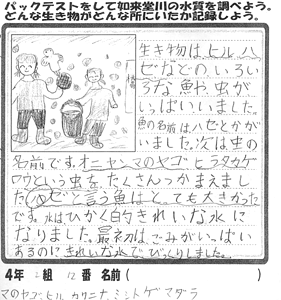 パックテストをして如来堂川の水質を調べよう。
どんな生き物がどんな所にいたか記録しよう。
生き物は、ヒル、ハ
ゼなどの、いろい
ろな魚や、虫が
いっぱいいました。
魚の名前はハゼとかがい
ました。次は虫の
名前です。オニヤンマのヤゴ、ヒラタカゲ
ロウという虫を、たくさんつかまえまし
た。ハゼと言う魚はとっても大きかった
です。水はひかく的きれいな水に
なりました。最初は、ごみがいっぱい
あるのにきれいな水で、びっくりしました。
4年 組 12番 名前( )
マのヤゴ、ヒル、カワニナ、ミントゲマダラ